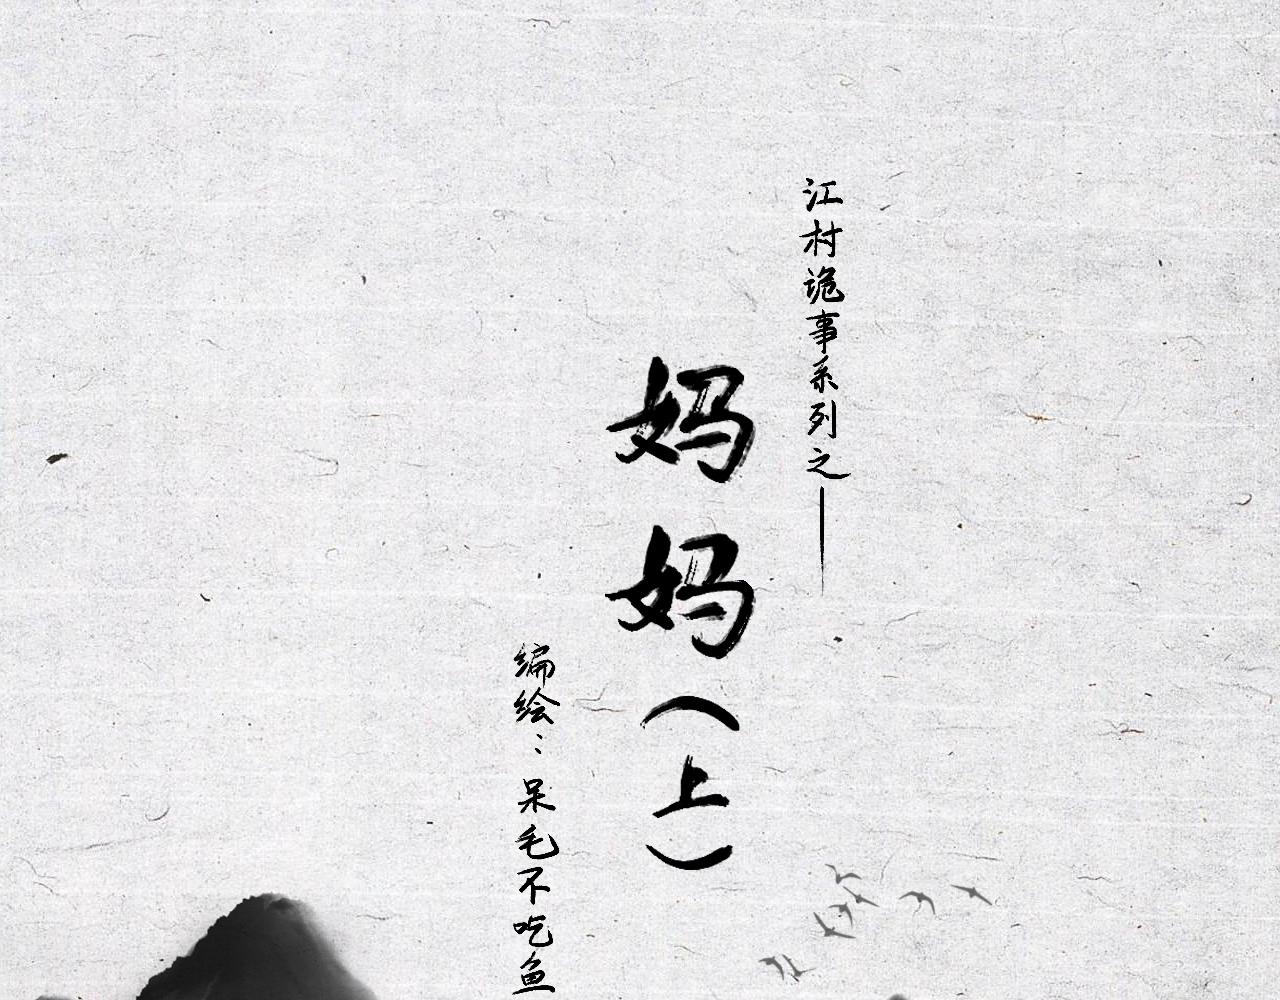 江村诡事系列之——
妈妈（上）
编绘：呆毛不吃鱼